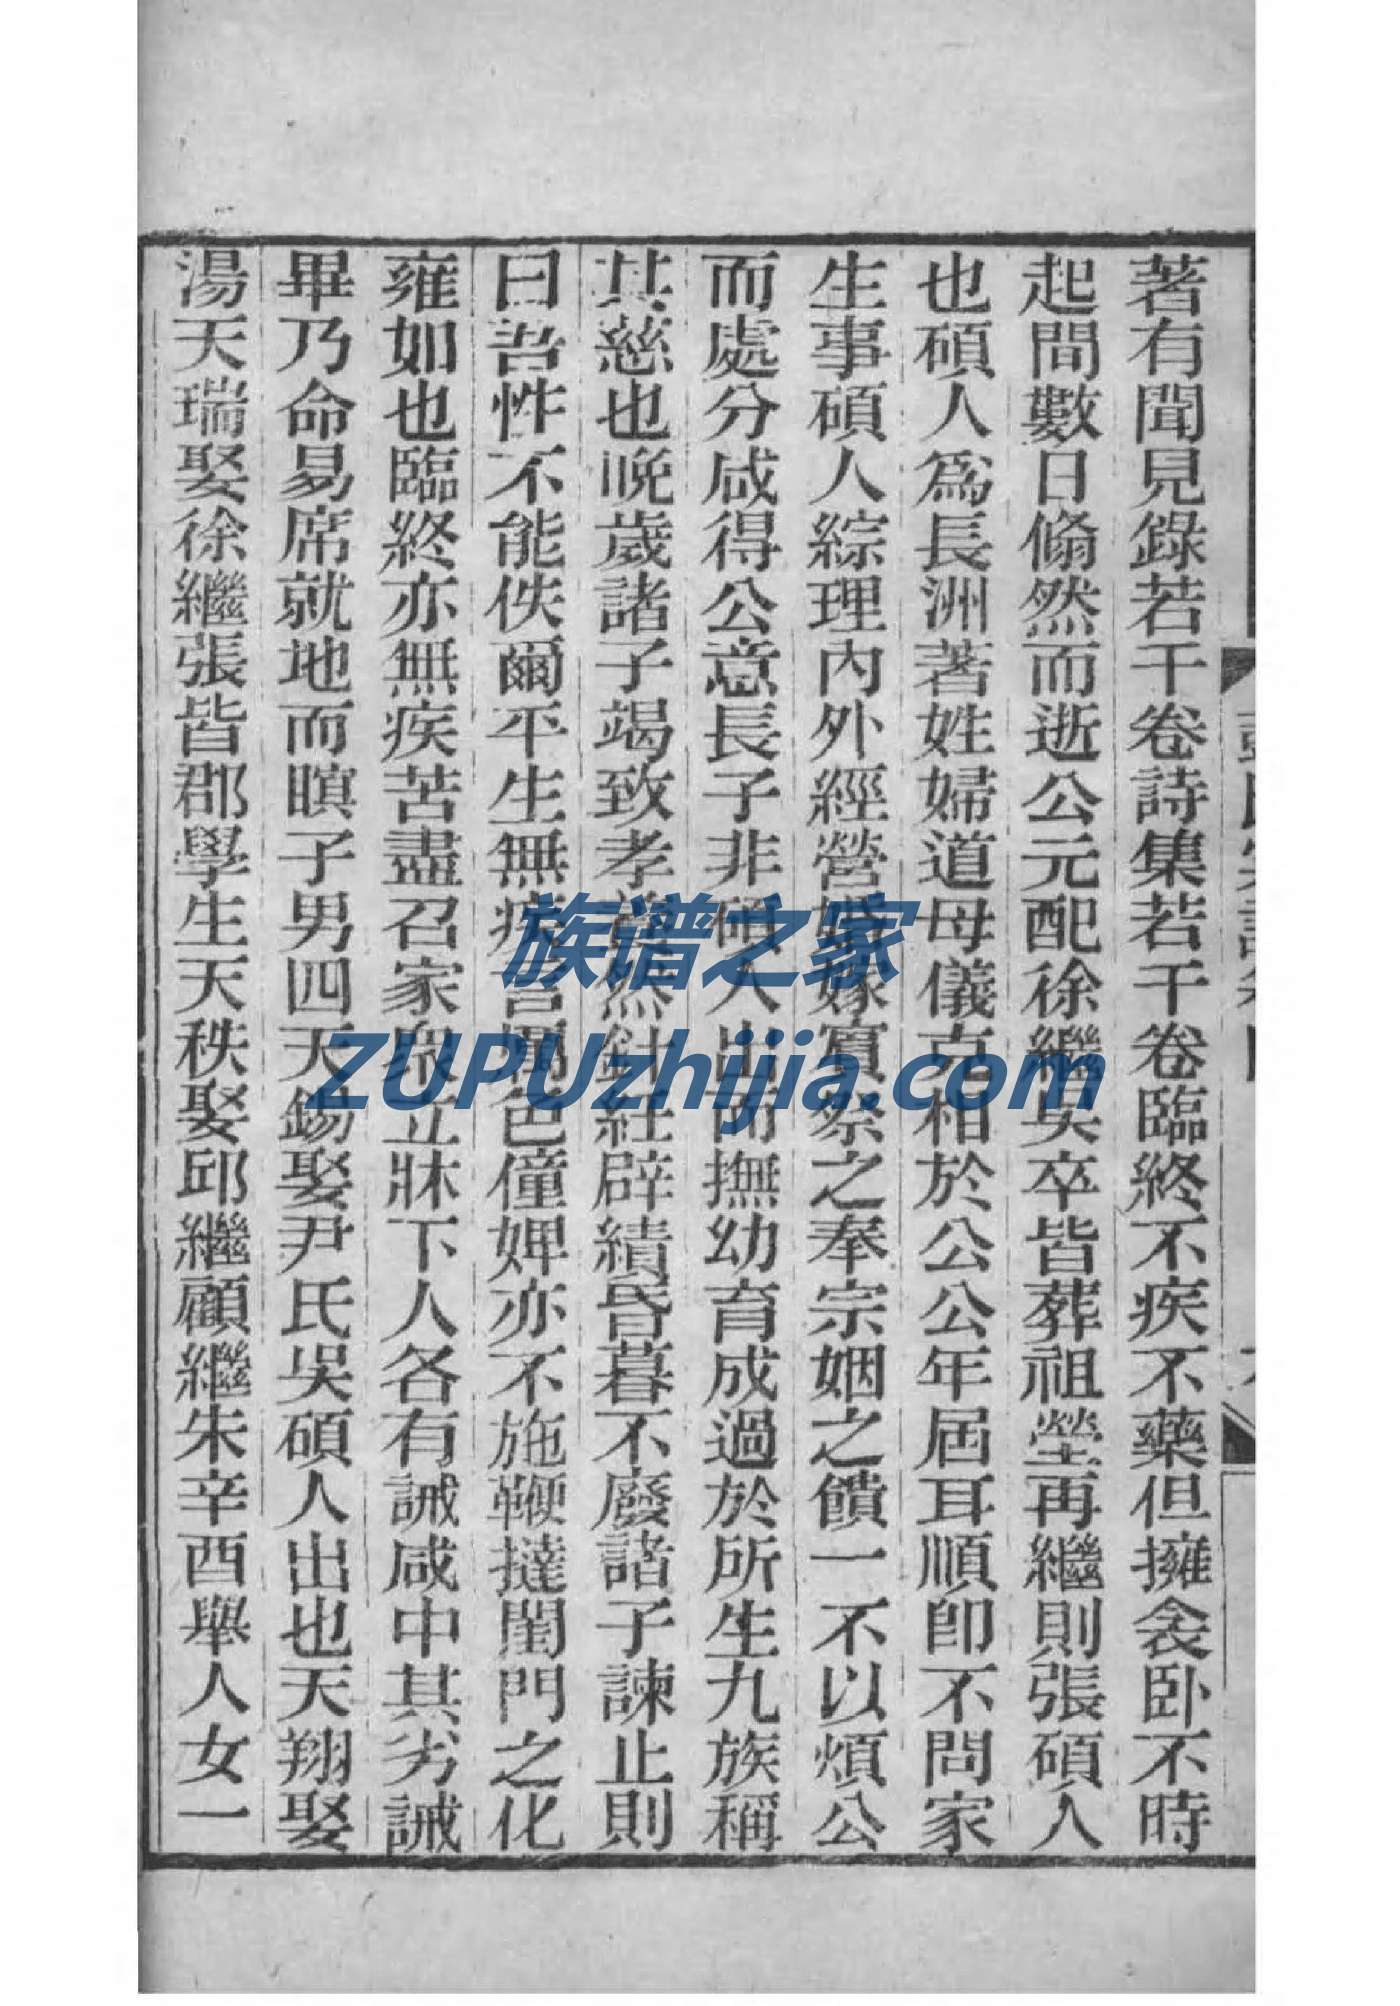 著有聞見錄若干卷詩集若干卷臨終不疾不藥但擁衾卧不時
起問數日翛然而逝公元配徐繼吳卒皆葬祖塋再繼則張碩人
也碩人爲長洲著姓婦道母儀克相於公公年屆耳順卽不問家
生事碩人綜理內外經營婚嫁賓祭之奉宗姻之饋一不以煩公
而處分咸得公意長子非碩人出而撫幼育成過於所生九族稱
其慈也晚歲諸子竭致孝養然針紝辟績昏暮不廢諸子諫止則
曰吾性不能佚爾平生無疾言慍色僮婢亦不施鞭撻閨門之化
雍如也臨終亦無疾苦盡召家衆立牀下人各有誡咸中其劣誡
畢乃命易席就地而瞑子男四天錫娶尹氏吳碩人出也天翔娶
湯天瑞娶徐繼張皆郡學生天秩娶邱繼顧繼朱辛酉舉人女一
族谱之家
ZUPUzhijia.com